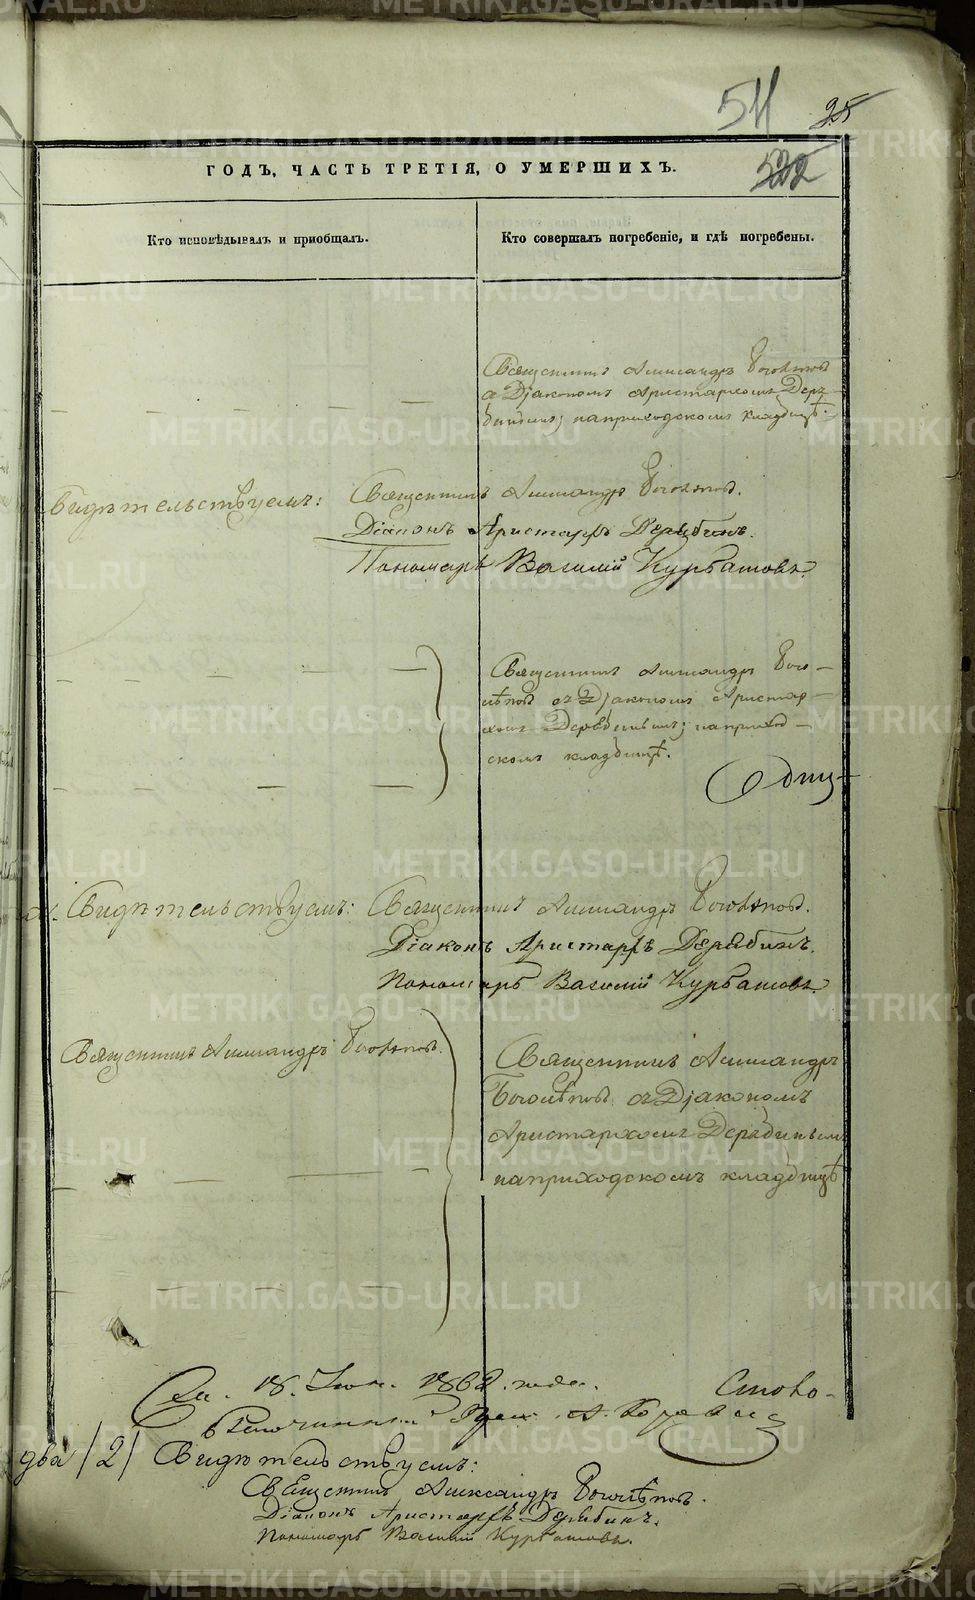 511 25
522
ГОДЪ, ЧАСТЬ ТРЕТІЯ, О УМЕРШИХЪ.
Кто исповѣдывалъ и приобщалъ.
Кто совершалъ погребеніе, и гдѣ погребены.
Священникъ Александръ Боголѣповъ
с Діакономъ Аристархомъ Деря-
бинымъ; на приходскомъ кладбищѣ.
Свидѣтельствуемъ: Священникъ Александръ Боголѣповъ.
Діаконъ Аристархъ Дерябинъ.
Пономарь Василій Курбатовъ.
Священникъ Александръ Бого-
лѣповъ съ Діакономъ Аристар-
хомъ Дерябинымъ; на приход-
скомъ кладбищѣ.
Свидѣтельствуемъ: Священникъ Александръ Боголѣповъ.
Діаконъ Аристархъ Дерябинъ.
Пономарь Василій Курбатовъ.
Священникъ Александръ Боголѣповъ.
Священникъ Александръ
Боголѣповъ съ Діакономъ
Аристархомъ Дерябинымъ
на приходскомъ кладбищѣ
18. 1862 года.
Благочинный
два /2/ Свидѣтельствуемъ:
Священникъ Александръ Боголѣповъ.
Діаконъ Аристархъ Дерябинъ.
Пономарь Василій Курбатовъ.
METRIKI.GASO-URAL.RU